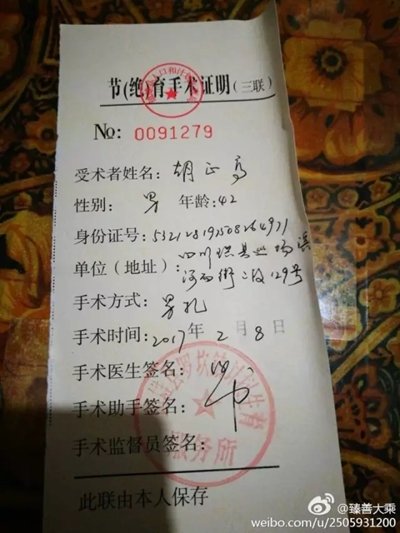 节(绝)育手术证明(三联)
No: 0091279
受术者姓名: 胡正高
性别: 男 年龄: 42
身份证号:
单位(地址): 四川珙县巡场镇
河西街二段129号
手术方式: 男扎
手术时间: 2017年 2月8日
手术医生签名:
手术助手签名:
手术监督员签名:
服务所
此联由本人保存
@臻善大乘
weibo.com/u/2505931200